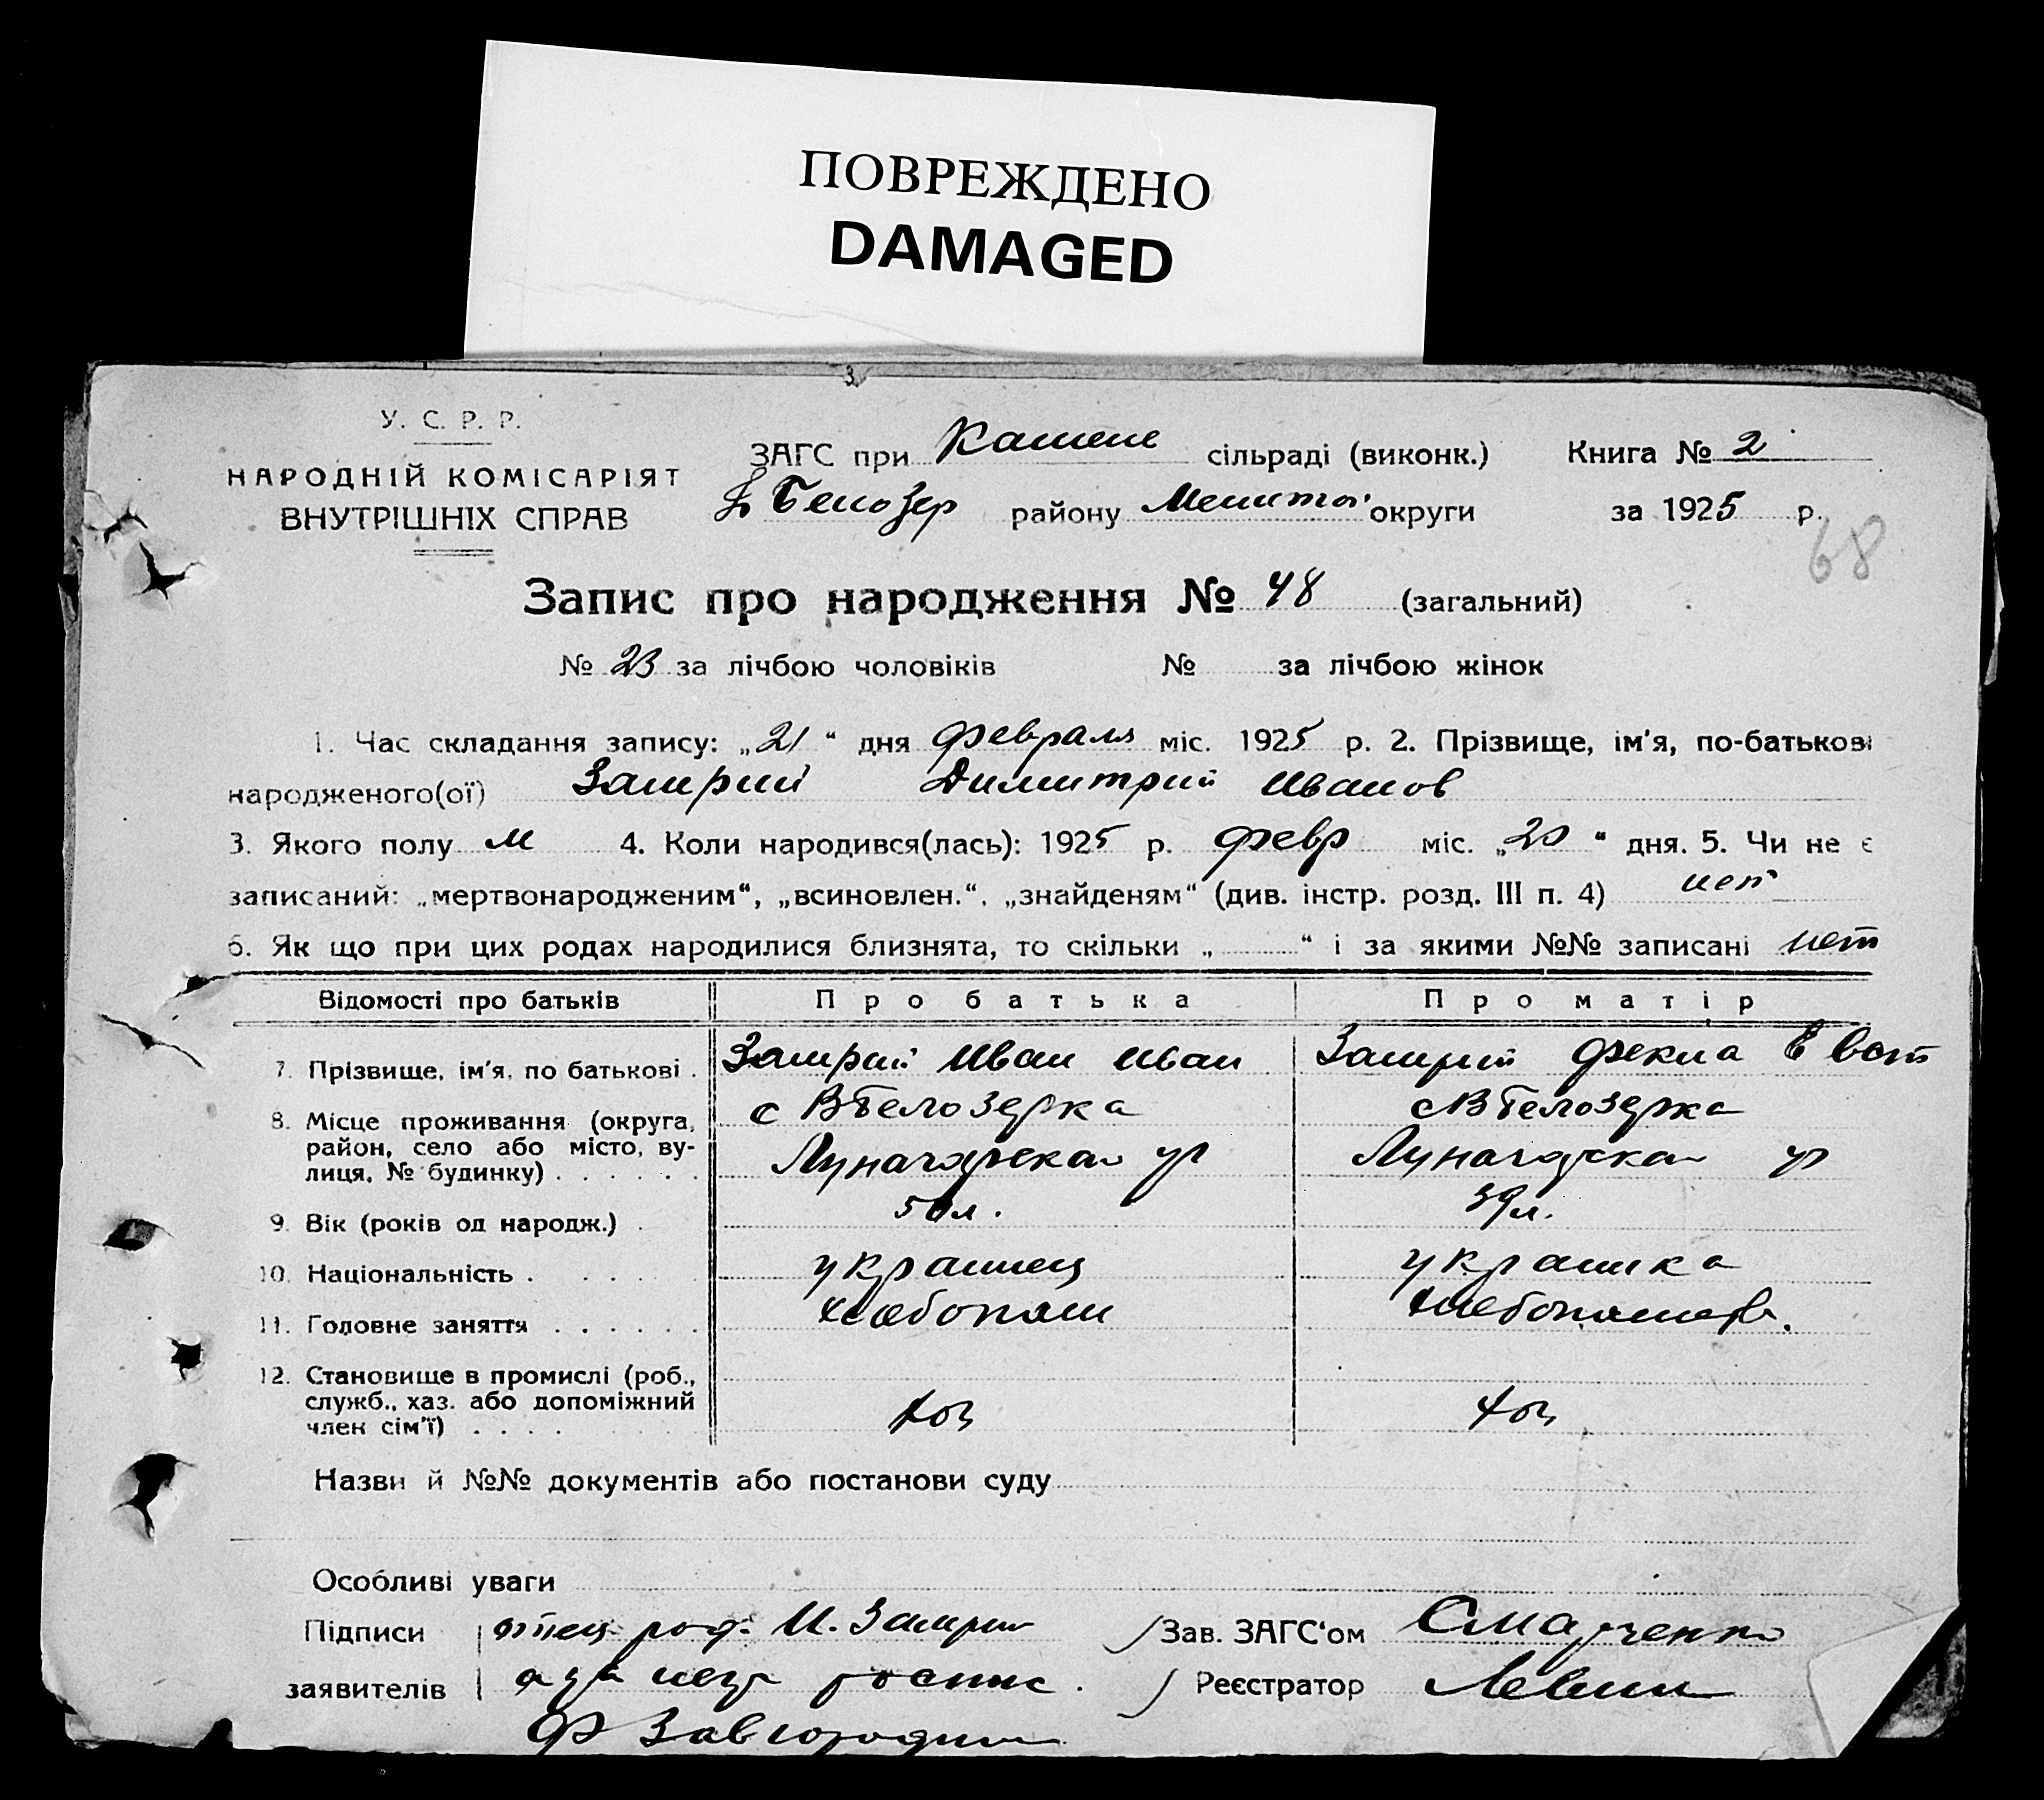 ПОВРЕЖДЕНО
DAMAGED
У. С. Р. Р.
НАРОДНІЙ КОМІСАРІЯТ
ВНУТРІШНІХ СПРАВ
ЗАГС при Камене сільраді (виконк.) Книга № 2
Белозер району Мелитоп округи за 1925 р.
68
Запис про народження № 48 (загальний)
№ 23 за лічбою чоловіків № за лічбою жінок
1. Час складання запису: „21“ дня февраля міс. 1925 р. 2. Прізвище, ім'я, по-батькові
народженого(ої) Замрий Димитрий Иванов
3. Якого полу м 4. Коли народився(лась): 1925 р. февр міс. „20“ дня. 5. Чи не є
записаний: „мертвонародженим“, „всиновлен.“, „знайденям“ (див. інстр. розд. III п. 4) нет
6. Як що при цих родах народилися близнята, то скільки „ “ і за якими №№ записані нет
Відомості про батьків Про батька Про матір
7. Прізвище, ім'я, по батькові . Замрий Иван Иван Замрий Фекла
8. Місце проживання (округа, с ВБелозерка с ВБелозерка
район, село або місто, ву-
лиця, № будинку) . . . . . . Луначарская ул Луначарская ул
9. Вік (років од народж.) . 50 л. 39 л.
10. Національність . украинец украинка
11. Головне заняття . . . . . . хлебопаш
12. Становище в промислі (роб.,
служб., хаз. або допоміжний хоз хоз
член сім'ї) . . . .
Назви й №№ документів або постанови суду
Особливі уваги
Підписи отец И. Замрий Зав. ЗАГС'ом Смарченко
заявителів Реєстратор Левин